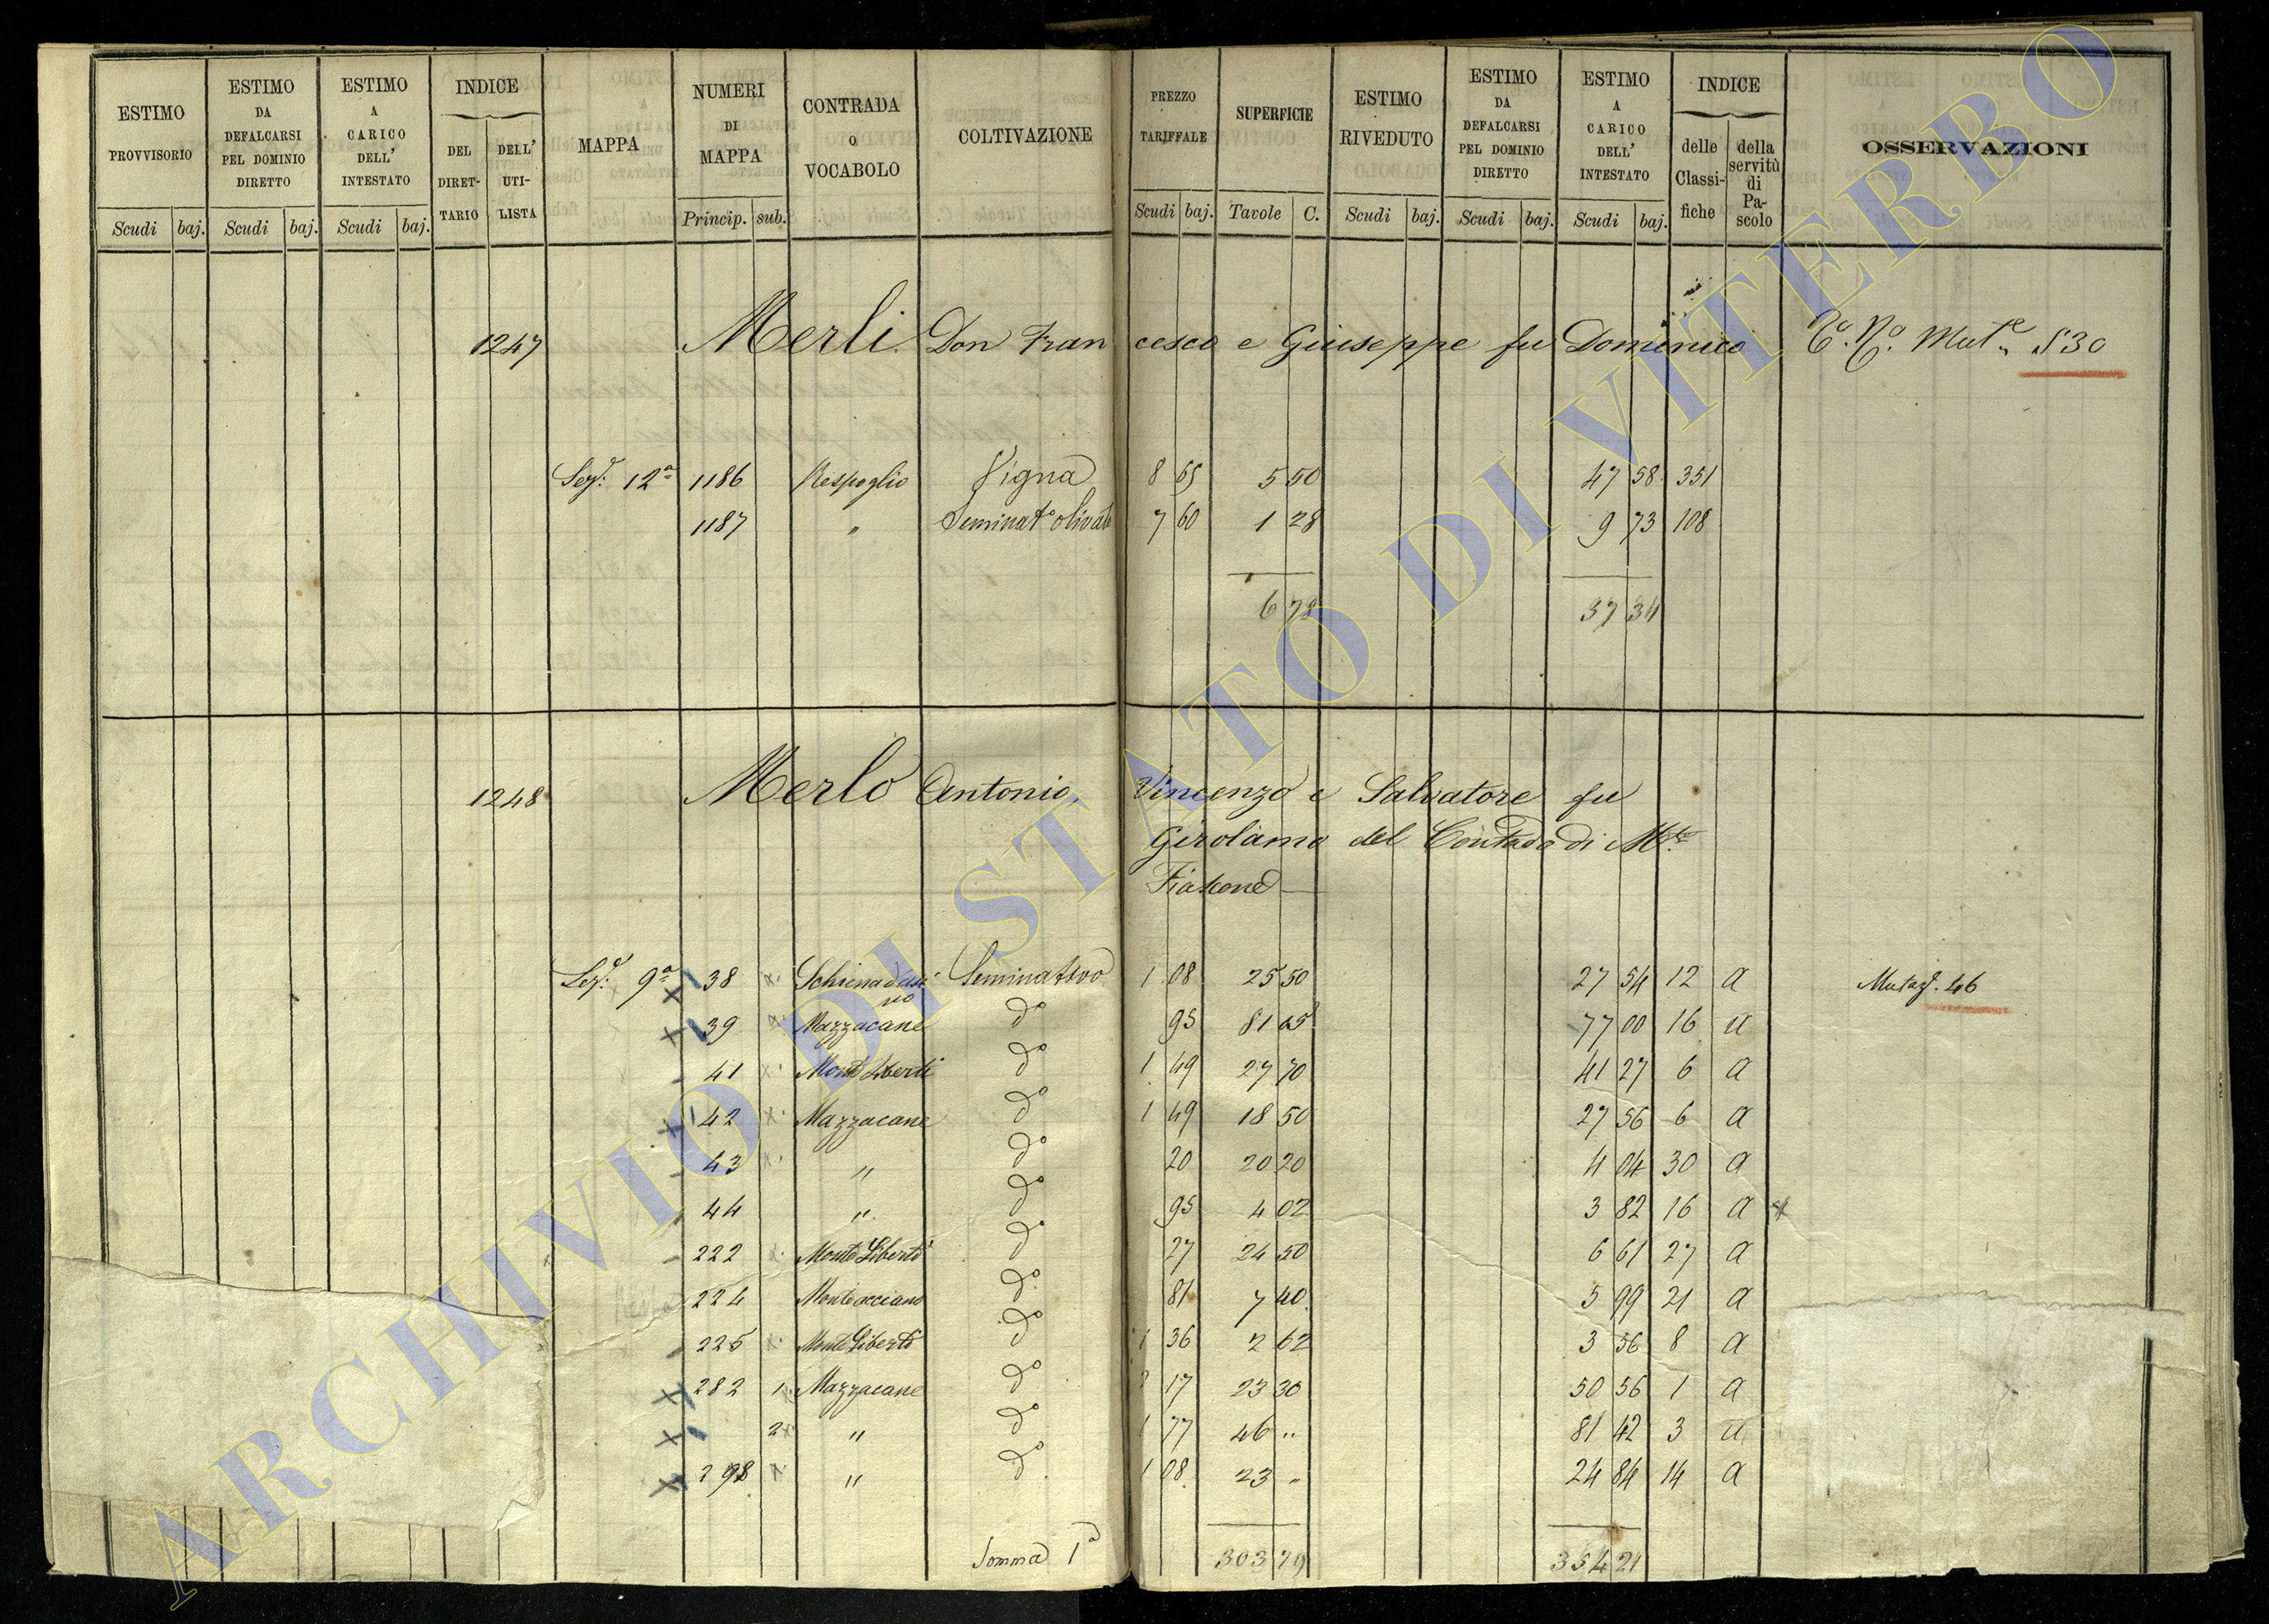 ESTIMO PROVVISORIO
Scudi baj.
ESTIMO DA DEFALCARSI PEL DOMINIO DIRETTO
Scudi baj.
ESTIMO A CARICO DELL' INTESTATO
Scudi baj.
INDICE
DEL DIRET- TARIO
DELL' UTI- LISTA
MAPPA
NUMERI DI MAPPA
Princip. sub.
CONTRADA O VOCABOLO
COLTIVAZIONE
PREZZO TARIFFALE
Scudi baj.
SUPERFICIE
Tavole C.
ESTIMO RIVEDUTO
Scudi baj.
ESTIMO DA DEFALCARSI PEL DOMINIO DIRETTO
Scudi baj.
ESTIMO A CARICO DELL' INTESTATO
Scudi baj.
INDICE
delle Classi- fiche
della servitù di Pa- scolo
OSSERVAZIONI
1247 Merli Don Fran cesco e Giuseppe fu Domenico 530
Sez: 12a 1186 Respoglio Vigna 8 65 5 50 47 58 351
1187 " Seminato olivato 7 60 1 28 9 73 108
6 78 57 31
1248 Merlo Antonio, Vincenzo e Salvatore fu
Girolamo del Contado di Mte
Fiascone
Sez: 9a 38 Schienadasi no Seminativo 1 08 25 50 27 54 12 a Mutaz. 46
39 Mazzacane do 95 81 05 77 00 16 a
41 Monte Liberti do 1 49 27 70 41 27 6 a
42 Mazzacane do 1 49 18 50 27 56 6 a
43 " do 20 20 20 4 04 30 a
44 " do 95 4 02 3 82 16 a
222 Monte Liberti do 27 24 50 6 61 27 a
224 Monteacciano do 81 7 40 5 99 21 a
225 Monte Liberti do 1 36 2 62 3 56 8 a
282 1 Mazzacane do 2 17 23 30 50 56 1 a
2 " do 1 77 46 " 81 42 3 a
298 " do 1 08 23 " 24 84 14 a
Somma 1a 303 79 354 21
ARCHIVIO DI STATO DI VITERBO